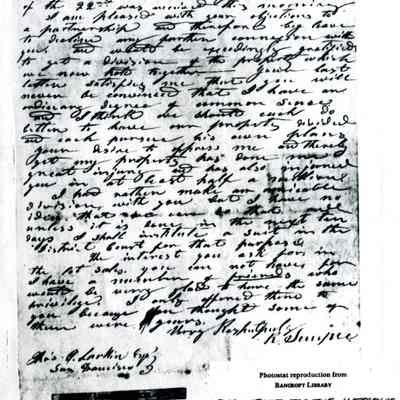 of the 22nd was received this morning
I am pleased with your objections to
a partnership and therefore beg leave
to decline any further connexion with
you and would be exceedingly gratified
to get a division of the property which
we now hold together. Your last
letter satisfies me that you will
never be convinced that I have an
ordinary degree of common sense
and I think we should each do
better to have our property divided
and each pursue his own plans
Your desire to oppose me and thereby
get my property has done me a
great injury and has also injured
you in at least half a million
I had rather make an amicable
division with you but I have no
idea that we can do that
unless it is done in the next ten
days I shall institute a suit in the
District Court for that purpose
The interest you ask for in
the lot sale you can not have for
I have a number of friends who
would be very glad to have the same
privilege I only offered them to
you because you thought some of
them were yours.
Very Respectfully
R. Semple
Thos O. Larkin Esqr
San Francisco
Photostat reproduction from
BANCROFT LIBRARY